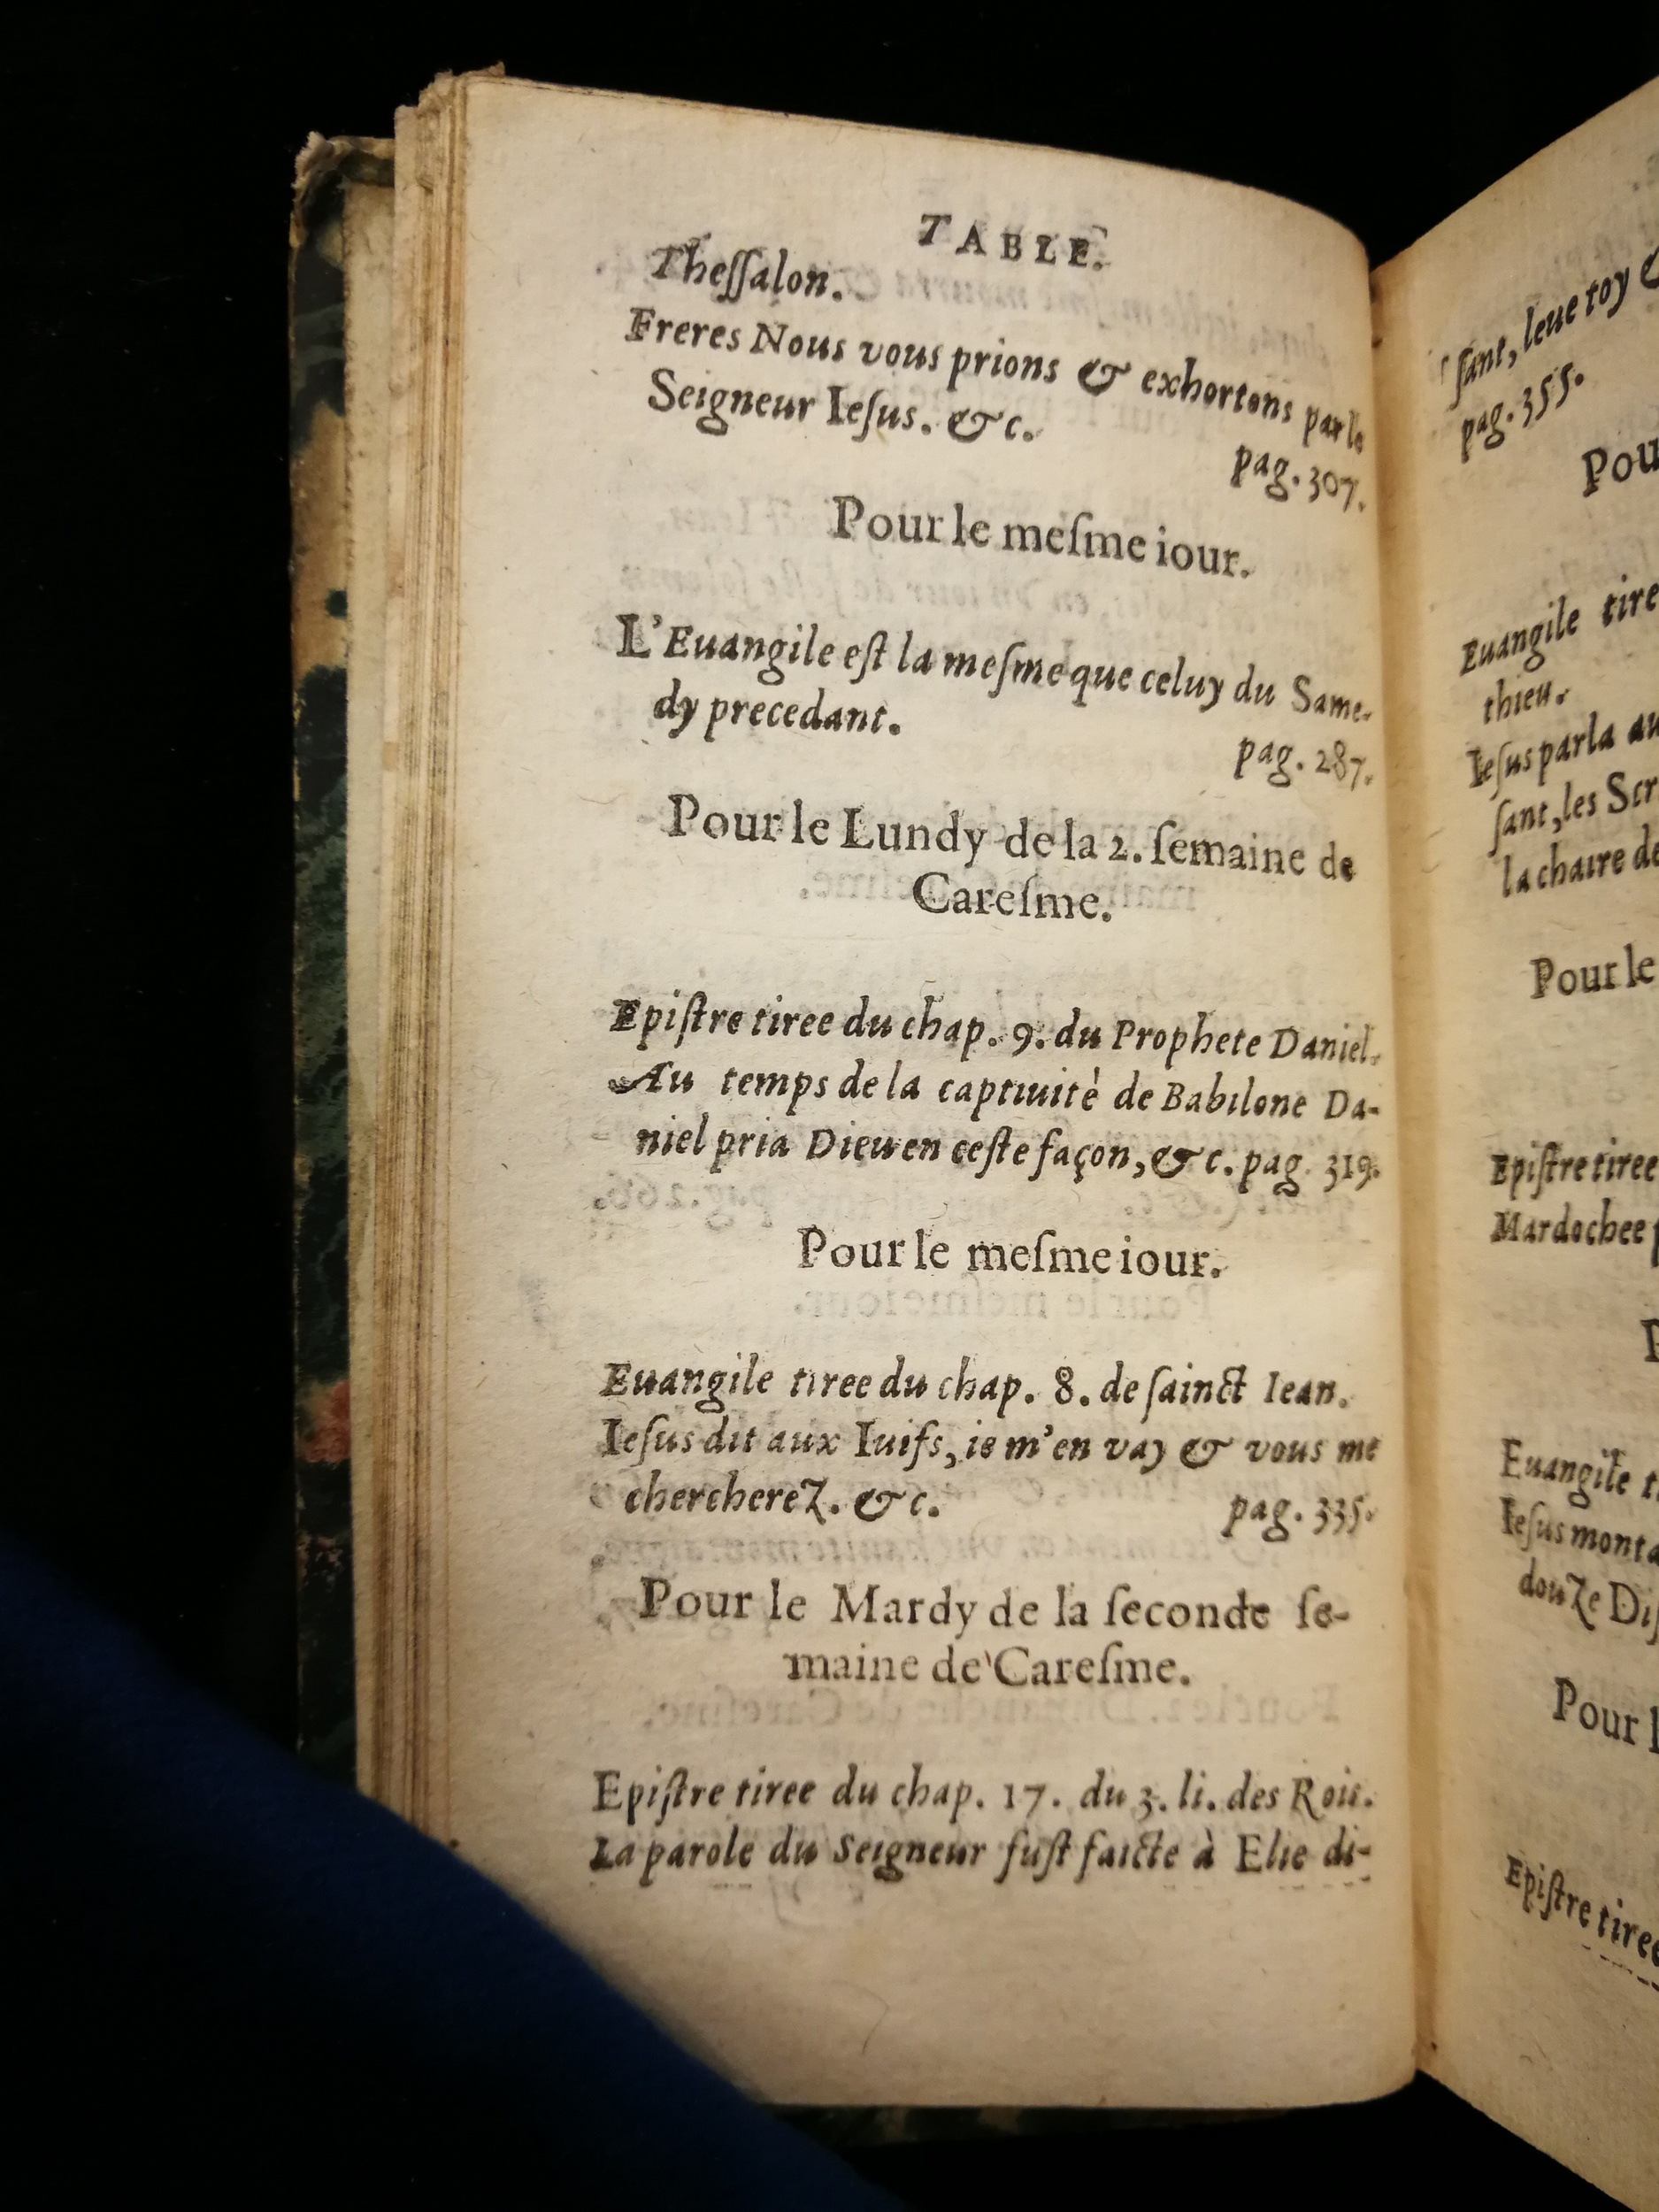 TABLE.
Theſſalon.
Freres Nous vous prions & exhortons par le
Seigneur Ieſus. &c.
pag. 307.
Pour le meſme iour.
L'Euangile eſt la meſme que celuy du Same-
dy precedant.
pag. 287.
Pour le Lundy de la 2. ſemaine de
Careſme.
Epiſtre tiree du chap. 9. du Prophete Daniel.
Au temps de la captiuitè de Babilone Da-
niel pria Dieu en ceſte façon, &c. pag. 319.
Pour le meſme iour.
Euangile tiree du chap. 8. de ſainct Iean.
Ieſus dit aux Iuifs, ie m'en vay & vous me
chercherez. &c.
pag. 335.
Pour le Mardy de la ſeconde ſe-
maine de Careſme.
Epiſtre tiree du chap. 17. du 3. li. des Rois.
La parole du Seigneur fuſt faicte à Elie di-
ſant, leue toy &
pag. 355.
Pou
Euangile tire
thieu.
Ieſus parla au
ſant, les Scr
la chaire de
Pour le
Epiſtre tiree
Mardochee
P
Euangile ti
Ieſus monta
douze Diſ
Pour l
Epiſtre tiree